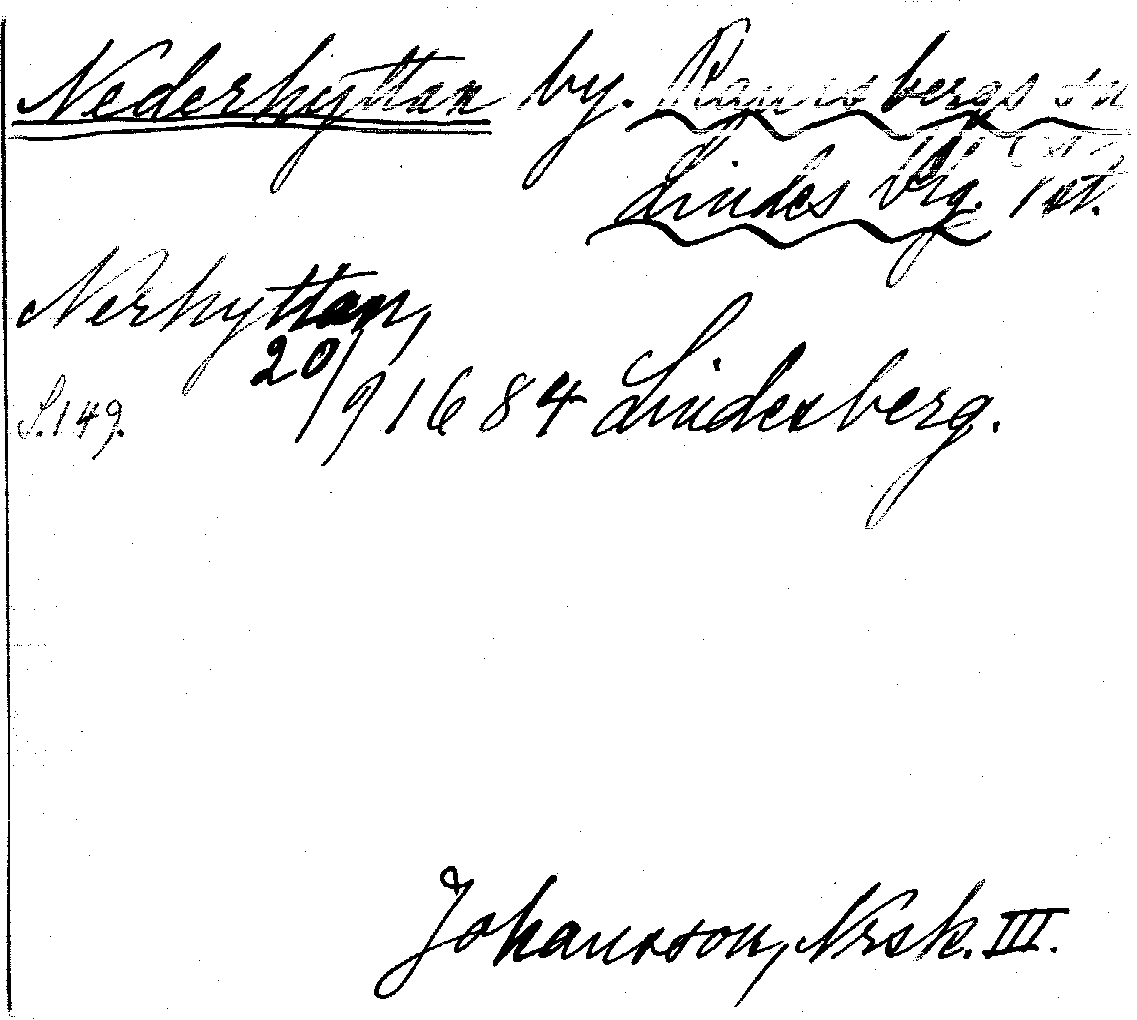 Nederhyttan by. Ramsbergs sn
Lindes Brg. Vst.
Nerhyttan,
S.149. 20/9 1684 Lindesberg.
Johansson, Nrsk. III.